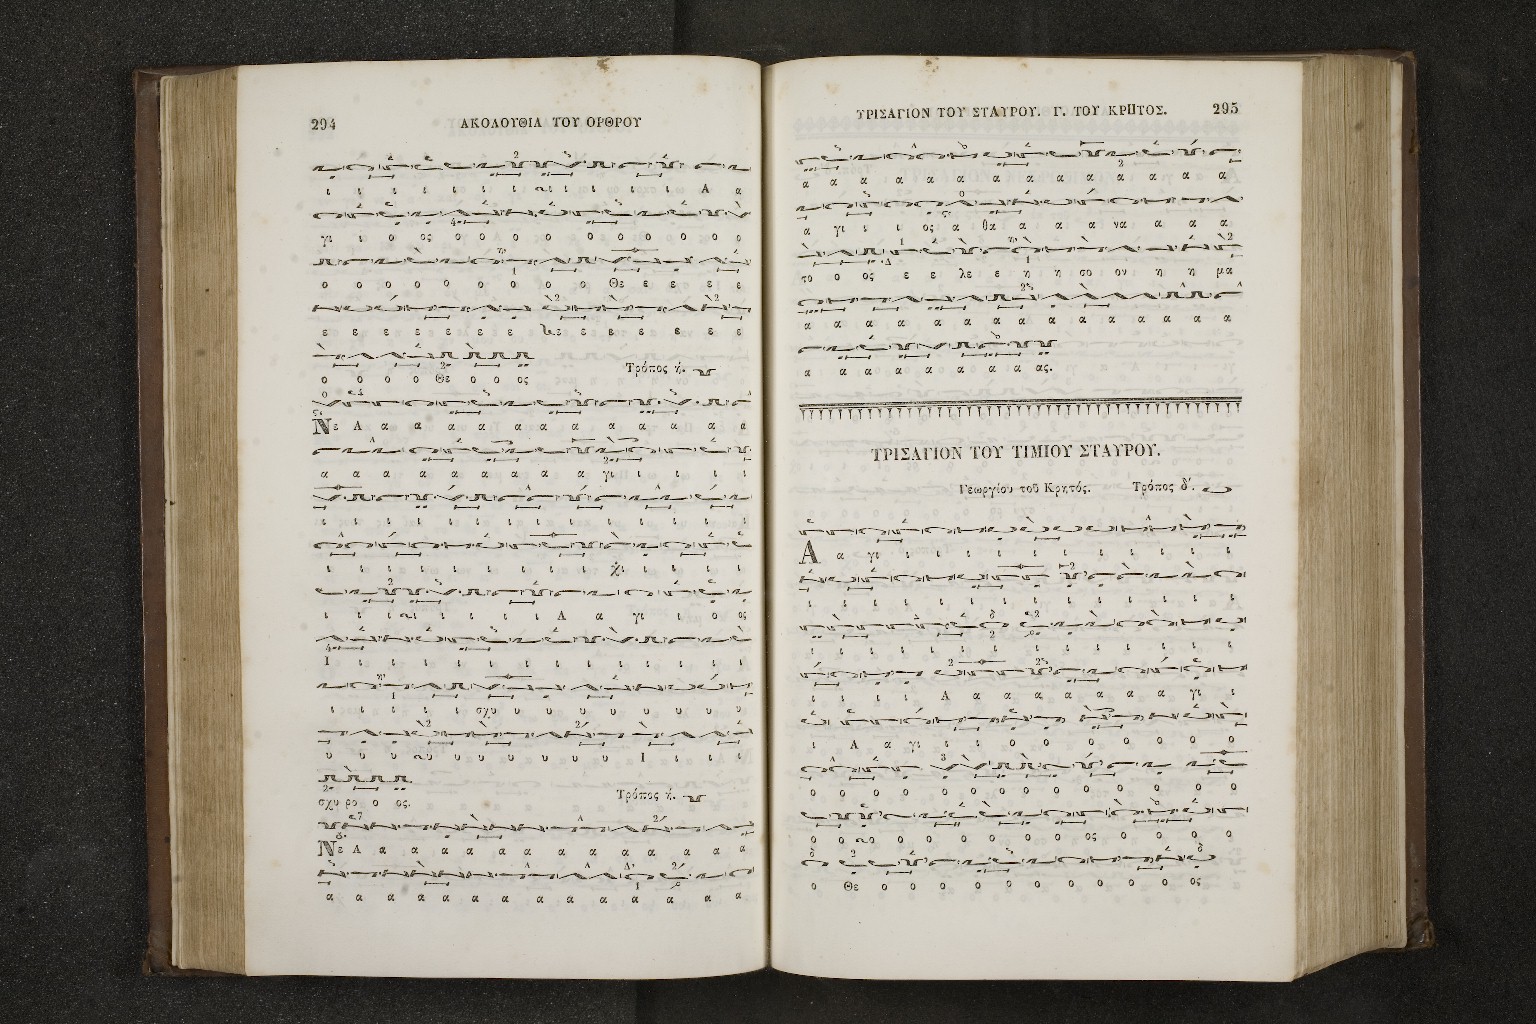 294
ΑΚΟΛΟΥΘΙΑ ΤΟΥ ΟΡΘΡΟΥ
ι ι ι ι ι ι ι ι ι ι ι Α α
γι ι ο ος ο ο ο ο ο ο ο ο ο ο
ο ο ο ο ο ο ο ο ο Θε ε ε ε ε
ε ε ε ε ε ε ε ε ε ε ε ε ε
ο ο ο ο Θε ο ο ος
Τρόπος ή.
Νε Α α α α α α α α α α α α α
α α α α α α α α α γι ι ι ι ι
ι ι ι ι ι ι ι ι ι ι ι
ι ι ι ι ι ι ι ι ι χι ι ι ι ι
ι ι ι ι ι ι ι Α α γι ι ο ος
Ι ι ι ι ι ι ι ι ι ι ι ι ι
ι ι ι ι ι σχυ υ υ υ υ υ υ υ υ
υ υ υ υ υ υ υ υ υ υ Ι ι ι ι
σχυ ρο ο ος.
Τρόπος ή.
Νε Α α α α α α α α α α α α α
α α α α α α α α α α α α α α
ΤΡΙΣΑΓΙΟΝ ΤΟΥ ΣΤΑΥΡΟΥ. Γ. ΤΟΥ ΚΡΗΤΟΣ.
295
α α α α α α α α α α α α α α
α γι ι ι ος α θα α α α να α α α
το ο ος ε ε λε ε η η σο ον η η μα
α α α α α α α α α α α α α α α
α α α α α α α α ας.
ΤΡΙΣΑΓΙΟΝ ΤΟΥ ΤΙΜΙΟΥ ΣΤΑΥΡΟΥ.
Γεωργίου τοῦ Κρητός.
Τρόπος δ'.
Α α γι ι ι ι ι ι ι ι ι ι ι ι
ι ι ι ι ι ι ι ι ι ι ι ι ι ι
ι ι ι ι ι ι ι ι ι ι ι ι ι ι
ι ι ι ι Α α α α α α α α γι ι
ι Α α γι ι ι ο ο ο ο ο ο ο ο
ο ο ο ο ο ο ο ο ο ο ο ο ο ο
ο ο ο ο ο ο ο ο ο ος ο ο ο ο
ο Θε ο ο ο ο ο ο ο ο ο ος